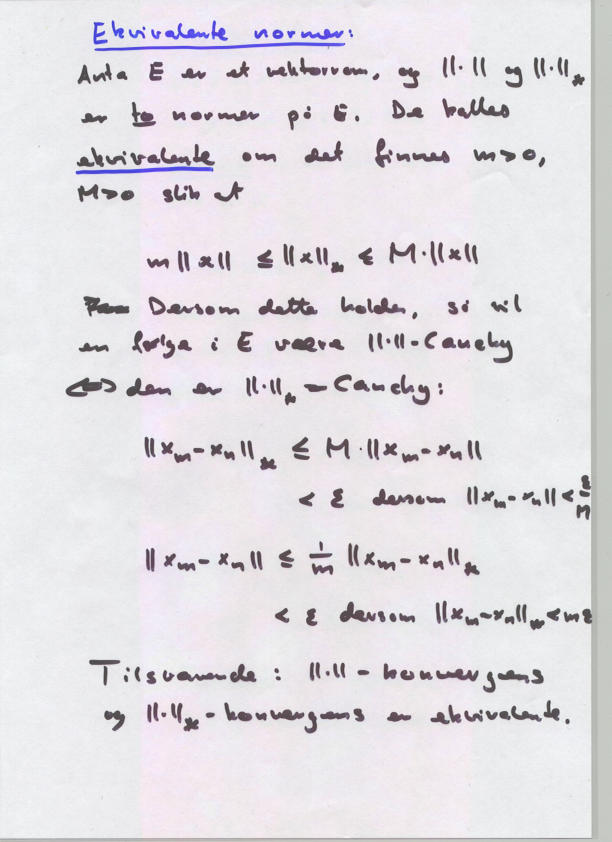 Ekvivalente normer:
Anta E er et vektorrom, og ||·|| og ||·||_*
er to normer på E. De kalles
ekvivalente om det finnes m>0,
M>0 slik at
m||x|| ≤ ||x||_* ≤ M·||x||
Dersom dette holder, så vil
en følge i E være ||·||-Cauchy
⇔ den er ||·||_*-Cauchy:
||x_m-x_n||_* ≤ M·||x_m-x_n||
< ε dersom ||x_m-x_n|| < ε/M
||x_m-x_n|| ≤ 1/m ||x_m-x_n||_*
< ε dersom ||x_m-x_n||_* < mε
Tilsvarende: ||·||-konvergens
og ||·||_*-konvergens er ekvivalente.